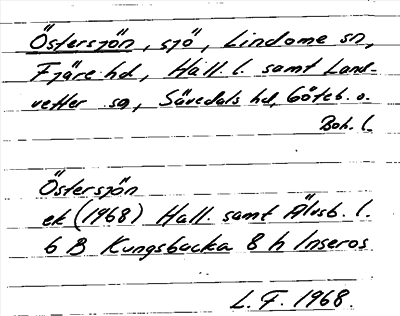 Östersjön, sjö, Lindome sn,
Fjäre hd, Hall. l. samt Land-
vetter sn, Sävedals hd, Göteb. o.
Boh. l.
Östersjön
ek (1968) Hall. samt Älvsb. l.
6 B Kungsbacka 8 h Inseros
L. F. 1968.